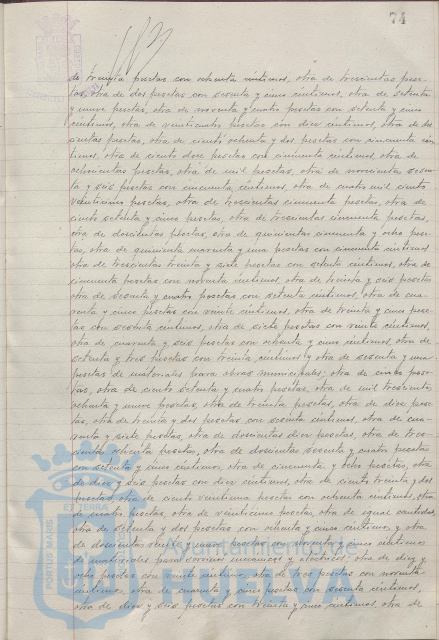 74
de treinta pesetas con ochenta céntimos, otra de trescientas pese-
tas, otra de dos pesetas con sesenta y cinco céntimos, otra de setenta
y nueve pesetas, otra de noventa y cuatro pesetas con setenta y cinco
céntimos, otra de veinticuatro pesetas con diez céntimos, otra de dos
cientas pesetas, otra de ciento ochenta y dos pesetas con cincuenta cén
timos, otra de ciento doce pesetas con cincuenta céntimos, otra de
ochocientas pesetas, otra de mil pesetas, otra de novecientas sesen-
ta y seis pesetas con cincuenta céntimos, otra de cuatro mil ciento
veinticinco pesetas, otra de trescientas cincuenta pesetas, otra de
ciento setenta y cinco pesetas, otra de trescientas cincuenta pesetas,
otra de doscientas pesetas, otra de quinientas cincuenta y ocho pese-
tas, otra de quinientas cuarenta y una pesetas con cincuenta céntimos
otra de trescientas treinta y siete pesetas con setenta céntimos, otra de
cincuenta pesetas con noventa céntimos, otra de treinta y seis pesetas
otra de sesenta y cuatro pesetas con setenta céntimos, otra de cua-
renta y cinco pesetas con veinte céntimos, otra de treinta y cinco pese-
tas con sesenta céntimos, otra de siete pesetas con veinte céntimos,
otra de cuarenta y seis pesetas con ochenta y cinco céntimos, otra de
setenta y tres pesetas con treinta céntimos y otra de sesenta y una
pesetas de materiales para obras municipales; otra de cuatro pese-
tas, otra de ciento setenta y cuatro pesetas, otra de mil trescientas
ochenta y nueve pesetas, otra de treinta pesetas, otra de diez pese-
tas, otra de treinta y dos pesetas con sesenta céntimos, otra de cua-
renta y siete pesetas, otra de doscientas diez pesetas, otra de tres-
cientas ochenta pesetas, otra de doscientas sesenta y cuatro pesetas
con setenta y cinco céntimos, otra de cincuenta y ocho pesetas, otra
de diez y seis pesetas con diez céntimos, otra de ciento treinta y dos
pesetas, otra de ciento veintiuna pesetas con ochenta céntimos, otra
de cuatro pesetas, otra de veinticinco pesetas, otra de igual cantidad,
otra de setenta y dos pesetas con ochenta y cinco céntimos y otra
de doscientas veinte y nueve pesetas con noventa y cinco céntimos
de materiales para servicios mecánicos y eléctricos; otra de diez y
ocho pesetas con veinte céntimos, otra de tres pesetas con noventa
céntimos, otra de cuarenta y cinco pesetas con sesenta céntimos,
otra de diez y seis pesetas con treinta y cinco céntimos, otra de
PORTUS MARIS
ET TERRÆ
Ayuntamiento de
HUELVA